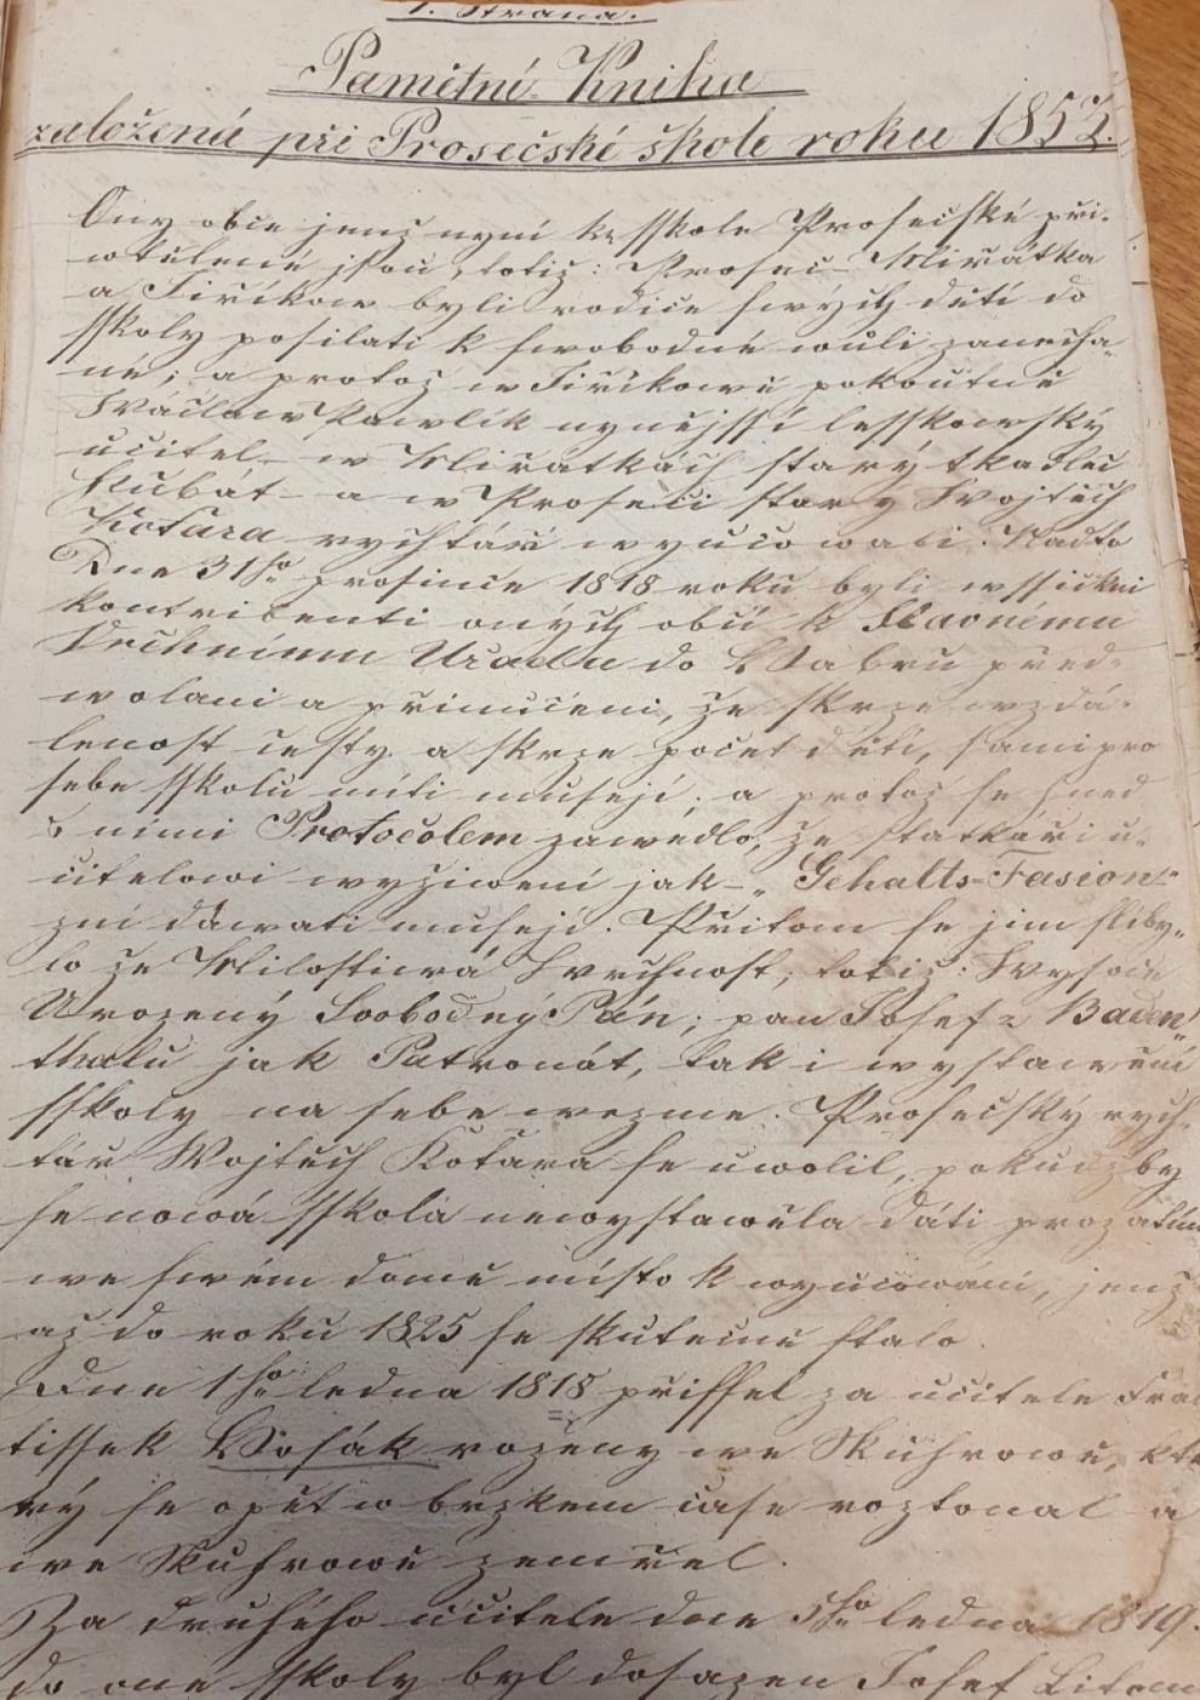 1. Strana.
Pamětní Kniha
založená při Prosečské škole roku 1852.
Ony obce jenž nyní ke sskole Prosečské při-
wtělené jsou, totiž: Proseč Miřátka
a Jiříkow byli rodiče swých dětí do
sskoly posílati k swobodné wůli zanecha-
né; a protož w Jiříkowě pokoutně
Wáclaw Pawlík nynějssí lesskowský
učitel w Miřatkách starý tkadlec
Kubát a w Proseči starý Wojtěch
Kotara rychtář wyučowali. Nadto
Dne 31ho prosince 1818 roku byli wssickni
kontribenti oných obcí k Slavnému
Vrchnímu Úřadu do Habru před-
wolani a přinuceni, že skrze wzdá-
lenost cesty a skrze počet dětí, sami pro
sebe sskolu míti musejí; a protož se hned
s nimi Protocolem zawedlo, že statkáři u-
čitelowi wyžiwení jak „Gehalts-Fasion“
zní dáwati musejí. Přitom se jim sliby-
lo že Milostiwá Wrchnost; totiž: Wysoce
Urozený Svobodný Pán; pan Josef z Baden-
thalu jak Patronát, tak i wystawění
sskoly na sebe wezme. Prosečský rych-
tář Wojtěch Kotara se uwolil, pokudž by
se nowá sskola newystawěla dáti prozatím
we swém domě místo k wyučowání, jenž
až do roku 1825 se skutečně stalo.
Dne 1ho ledna 1818 přissel za učitele Fra
tissek Wosák rozený we Skuhrowě, kte
rý se opět w brzkém čase roztonal a
we Skuhrowě zemřel.
Za druhého učitele dne 5ho ledna 1819.
do oné sskoly byl dosazen Josef